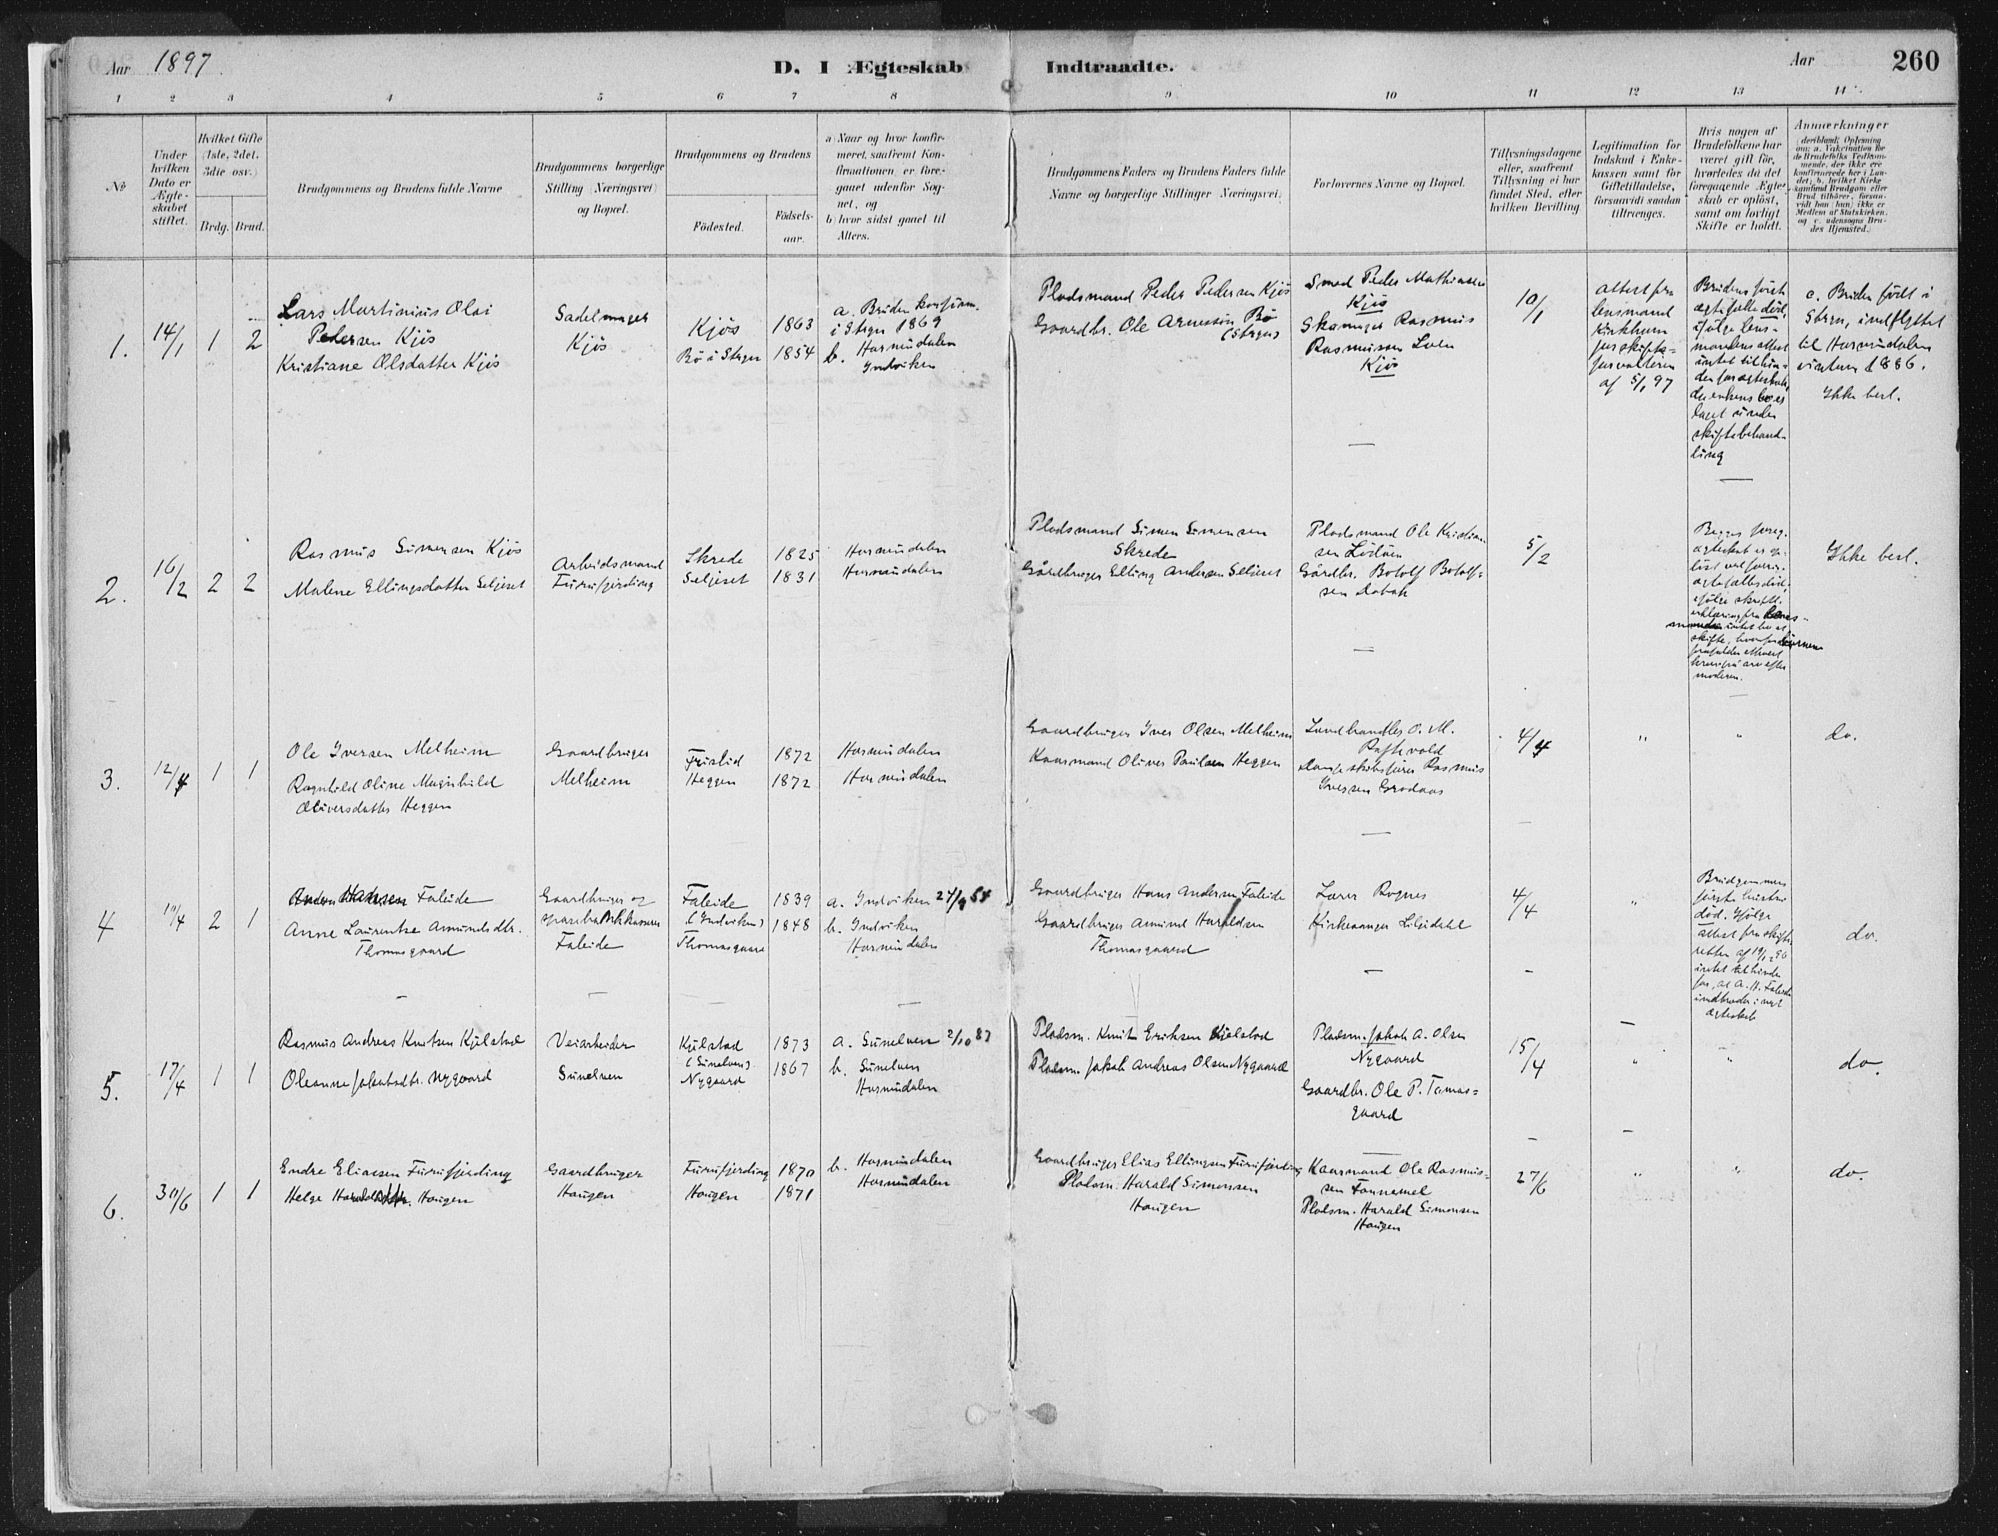 Aar 1897.
D. I Ægteskab Indtraadte.
Aar
260
1 2 3 4 5 6 7 8 9 10 11 12 13 14
No
Under hvilken Dato er Ægteskabet stiftet.
Hvilket Gifte (1ste, 2det, 3die osv.)
Brdg. Brud.
Brudgommens og Brudens fulde Navne
Brudgommens borgerlige Stilling (Næringsvei) og Bopæl.
Brudgommens og Brudens
Födested.
Födselsaar.
a) Naar og hvor konfirmeret, saafremt Konfirmationen er foregaaet udenfor Sognet, og
b) hvor sidst gaaet til Alters.
Brudgommens Faders og Brudens Faders fulde Navne og borgerlige Stillinger (Næringsvei).
Forlovernes Navne og Bopæl.
Tillysningsdagene eller, saafremt Tillysning ei har fundet Sted, efter hvilken Bevilling
Legitimation for Indskud i Enkekassen samt for Giftetilladelse, forsaavidt saadan tiltrænges.
Hvis nogen af Brudefolkene har været gift för, hvorledes da det foregaaende Ægteskab er oplöst, samt om lovligt Skifte er holdt.
Anmærkninger
1.
14/1
1 2
Lars Martinius Olai
Pedersen Kjös
Kristiane Olsdatter Kjös
Sadelmager
Kjös
Kjös 1863
Bö i Stryn 1854
a. Bruden konfirm.
i Stryn 1869
b. Hornindalen
Indviken
Pladsmand Peder Pedersen Kjös
Gaardbr. Ole Arnessön Bö
(Stryn)
Smed Peder Mathiassen
Kjös
Skomager Rasmus
Rasmussen Loen
Kjös
10/1
attest fra
lensmand
Kirkhorn
for skifte-
forvalteren
af 5/1 97
Brudens först
egtefælle död,
ifölge lens-
mandens attest
intet til hin-
der for egteskab,
da enkens bo er
taget under
skiftebehand-
ling
c. Bruden född i
Stryn, indflyttet
til Hornindalen
vinteren 1886.
Ikke besl.
2.
16/2
2 2
Rasmus Simensen Kjös
Malene Ellingsdatter Seljeset
Arbeidsmand
Furufjerding
Skrede 1825
Seljeset 1831
Hornindalen
Hornindalen
Pladsmand Simen Simensen
Skrede
Gårdbruger Elling Andersen Seljeset
Pladsmand Ole Kristian-
sen Lödöen
Gårdbr. Botolf Botolf-
sen
5/2
Begges foreg.
egteskab er op-
löst ved forrige
egtefælles död,
ifölge skriftl.
erklæring fra
intet bo at
skifte,
arv efter
moderen.
Ikke besl.
3.
12/4
1 1
Ole Iversen Melheim
Ragnhild Oline Magnhild
Oliversdatter Heggen
Gaardbruger
Melheim
Frislid 1872
Heggen 1872
Hornindalen
Hornindalen
Gaardbruger Iver Olsen Melheim
Kaarmand Oliver Paulsen Heggen
Landhandler O. M.
Raftevold
Dampskibsförer Rasmus
Iversen Grodaas
4/4
" "
do.
4
19/4
2 1
Anders Hansen Faleide
Anne Laurentze Amundsdtr.
Thomasgaard
Gaardbruger og
sparebankkasserer
Faleide
Faleide 1839
(Indviken)
Thomasgaard 1848
a. Indviken 24/9 54
b. Indviken
Hornindalen
Gaardbruger Hans Andersen Faleide
Gaardbruger Amund Haraldsen
Thomasgaard
Lærer Rognes
Kirkesanger Lilledahl
4/4
"
Brudgommens
förste hustru
död. Ifölge
attest fra skifte-
retten af 19/12 96
intet til hinder
for, at A. H. Faleide
indtræder i nyt
egteskab
do.
5.
17/4
1 1
Rasmus Andreas Knutsen Kjelstad
Oleanne Jakobsdtr. Nygaard
Veiarbeider
Sunelven
Kjelstad 1873
(Sunelven).
Nygaard 1867
a. Sunelven 2/10 87
b. Sunelven
Hornindalen
Pladsm. Knut Eriksen Kjelstad
Pladsm. Jakob Andreas Olsen Nygaard
Pladsm. Jakob A. Olsen
Nygaard
Gaardbr. Ole P. Tomas-
gaard
15/4
" "
do.
6.
30/6
1 1
Endre Eliassen Furufjerding
Helge Haraldsdtr. Haugen
Gaardbruger
Haugen
Furufjerding 1870
Haugen 1871
b. Hornindalen
Hornindalen
Gaardbruger Elias Ellingsen Furufjerding
Pladsm. Harald Simensen
Haugen
Kaarmand Ole Rasmus-
sen Tonnemel
Pladsm. Harald Simonsen
Haugen
27/6
" "
do.